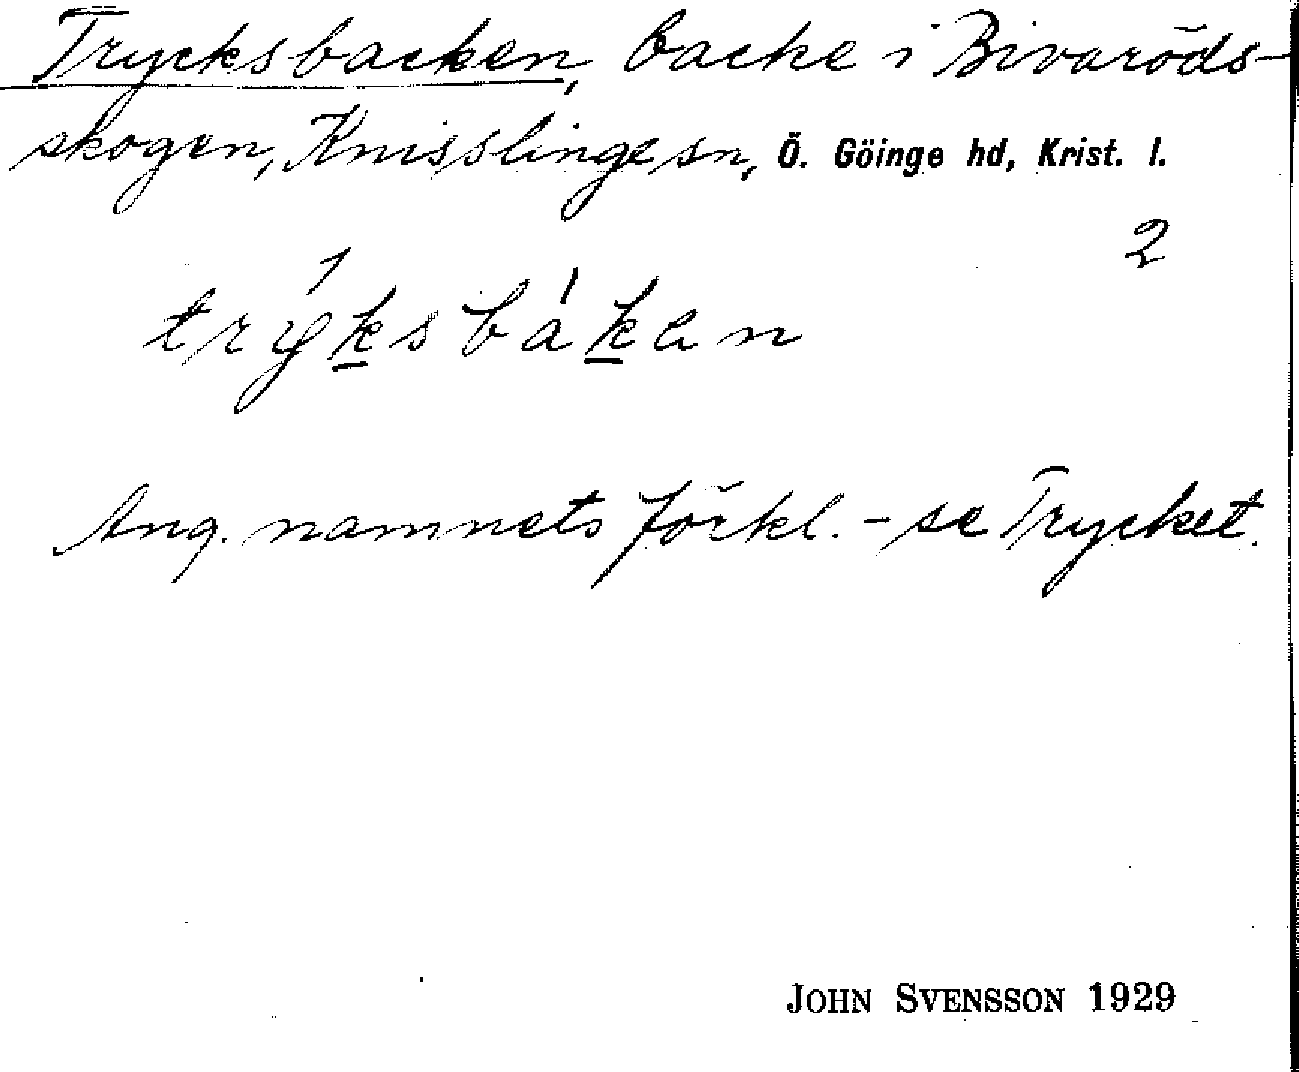 Trycksbacken, backe i Bivaröds-
skogen, Knisslinge sn, Ö. Göinge hd, Krist. l.
2
trýksbákan
Ang. namnets förkl. - se Trycket.
JOHN SVENSSON 1929